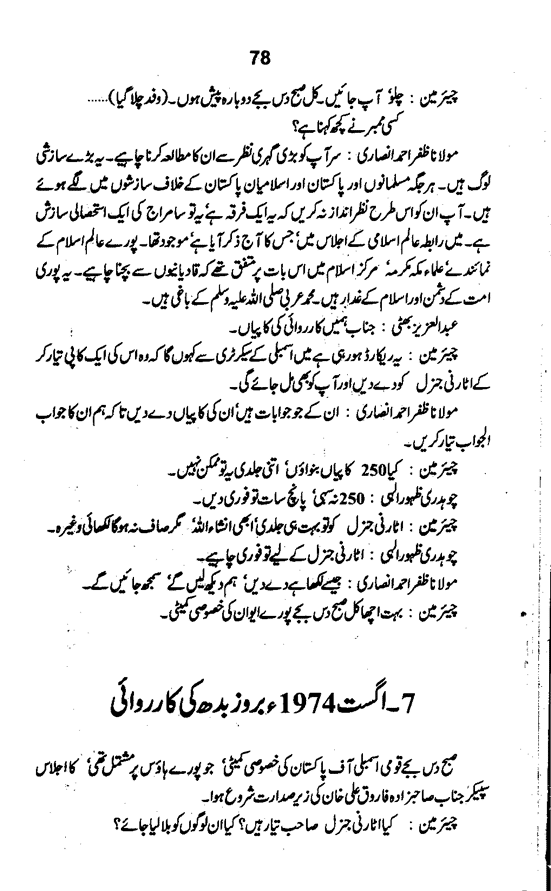 78
چیئرمین : چلو' آپ جائیں۔ کل صبح دس بجے دوبارہ پیش ہوں۔ (وفد چلا گیا)......
کسی ممبر نے کچھ کہنا ہے؟
مولانا ظفر احمد انصاری : سر آپ کو بڑی گہری نظر سے ان کا مطالعہ کرنا چاہیے۔ یہ بڑے سازشی
لوگ ہیں۔ ہر جگہ مسلمانوں اور پاکستان اور اسلامیان پاکستان کے خلاف سازشوں میں لگے ہوئے
ہیں۔ آپ ان کو اس طرح نظر انداز نہ کریں کہ یہ ایک فرقہ ہے' یہ تو سامراج کی ایک استحصالی سازش
ہے۔ میں رابطہ عالم اسلامی کے اجلاس میں' جس کا آج ذکر آیا ہے' موجود تھا۔ پورے عالم اسلام کے
نمائندے' علماء مکہ مکرمہ' مرکز اسلام میں اس بات پر متفق تھے کہ قادیانیوں سے بچنا چاہیے۔ یہ پوری
امت کے دشمن اور اسلام کے غدار ہیں۔ محمد عربی صلی اللہ علیہ وسلم کے باغی ہیں۔
عبدالعزیز بھٹی : جناب ہمیں کارروائی کی کاپیاں۔
چیئرمین : یہ ریکارڈ ہو رہی ہے میں اسمبلی کے سیکرٹری سے کہوں گا کہ وہ اس کی ایک کاپی تیار کر
کے اٹارنی جنرل کو دے دیں اور آپ کو بھی مل جائے گی۔
مولانا ظفر احمد انصاری : ان کے جو جوابات ہیں' ان کی کاپیاں دے دیں تاکہ ہم ان کا جواب
الجواب تیار کریں۔
چیئرمین : کیا 250 کاپیاں بنواؤں' اتنی جلدی یہ تو ممکن نہیں۔
چوہدری ظہور الٰہی : 250 نہ سہی' پانچ سات تو فوری دیں۔
چیئرمین : اٹارنی جنرل کو تو بہت ہی جلدی' ابھی انشاء اللہ' مگر صاف نہ ہوگا لکھائی وغیرہ۔
چوہدری ظہور الٰہی : اٹارنی جنرل کے لیے تو فوری چاہیے۔
مولانا ظفر احمد انصاری : جیسے لکھا ہے دے دیں' ہم دیکھ لیں گے' سمجھ جائیں گے۔
چیئرمین : بہت اچھا کل صبح دس بجے پورے ایوان کی خصوصی کمیٹی۔
7۔ اگست 1974ء بروز بدھ کی کارروائی
صبح دس بجے قومی اسمبلی آف پاکستان کی خصوصی کمیٹی' جو پورے ہاؤس پر مشتمل تھی' کا اجلاس
سپیکر جناب صاحبزادہ فاروق علی خان کی زیر صدارت شروع ہوا۔
چیئرمین : کیا اٹارنی جنرل صاحب تیار ہیں؟ کیا ان لوگوں کو بلا لیا جائے؟